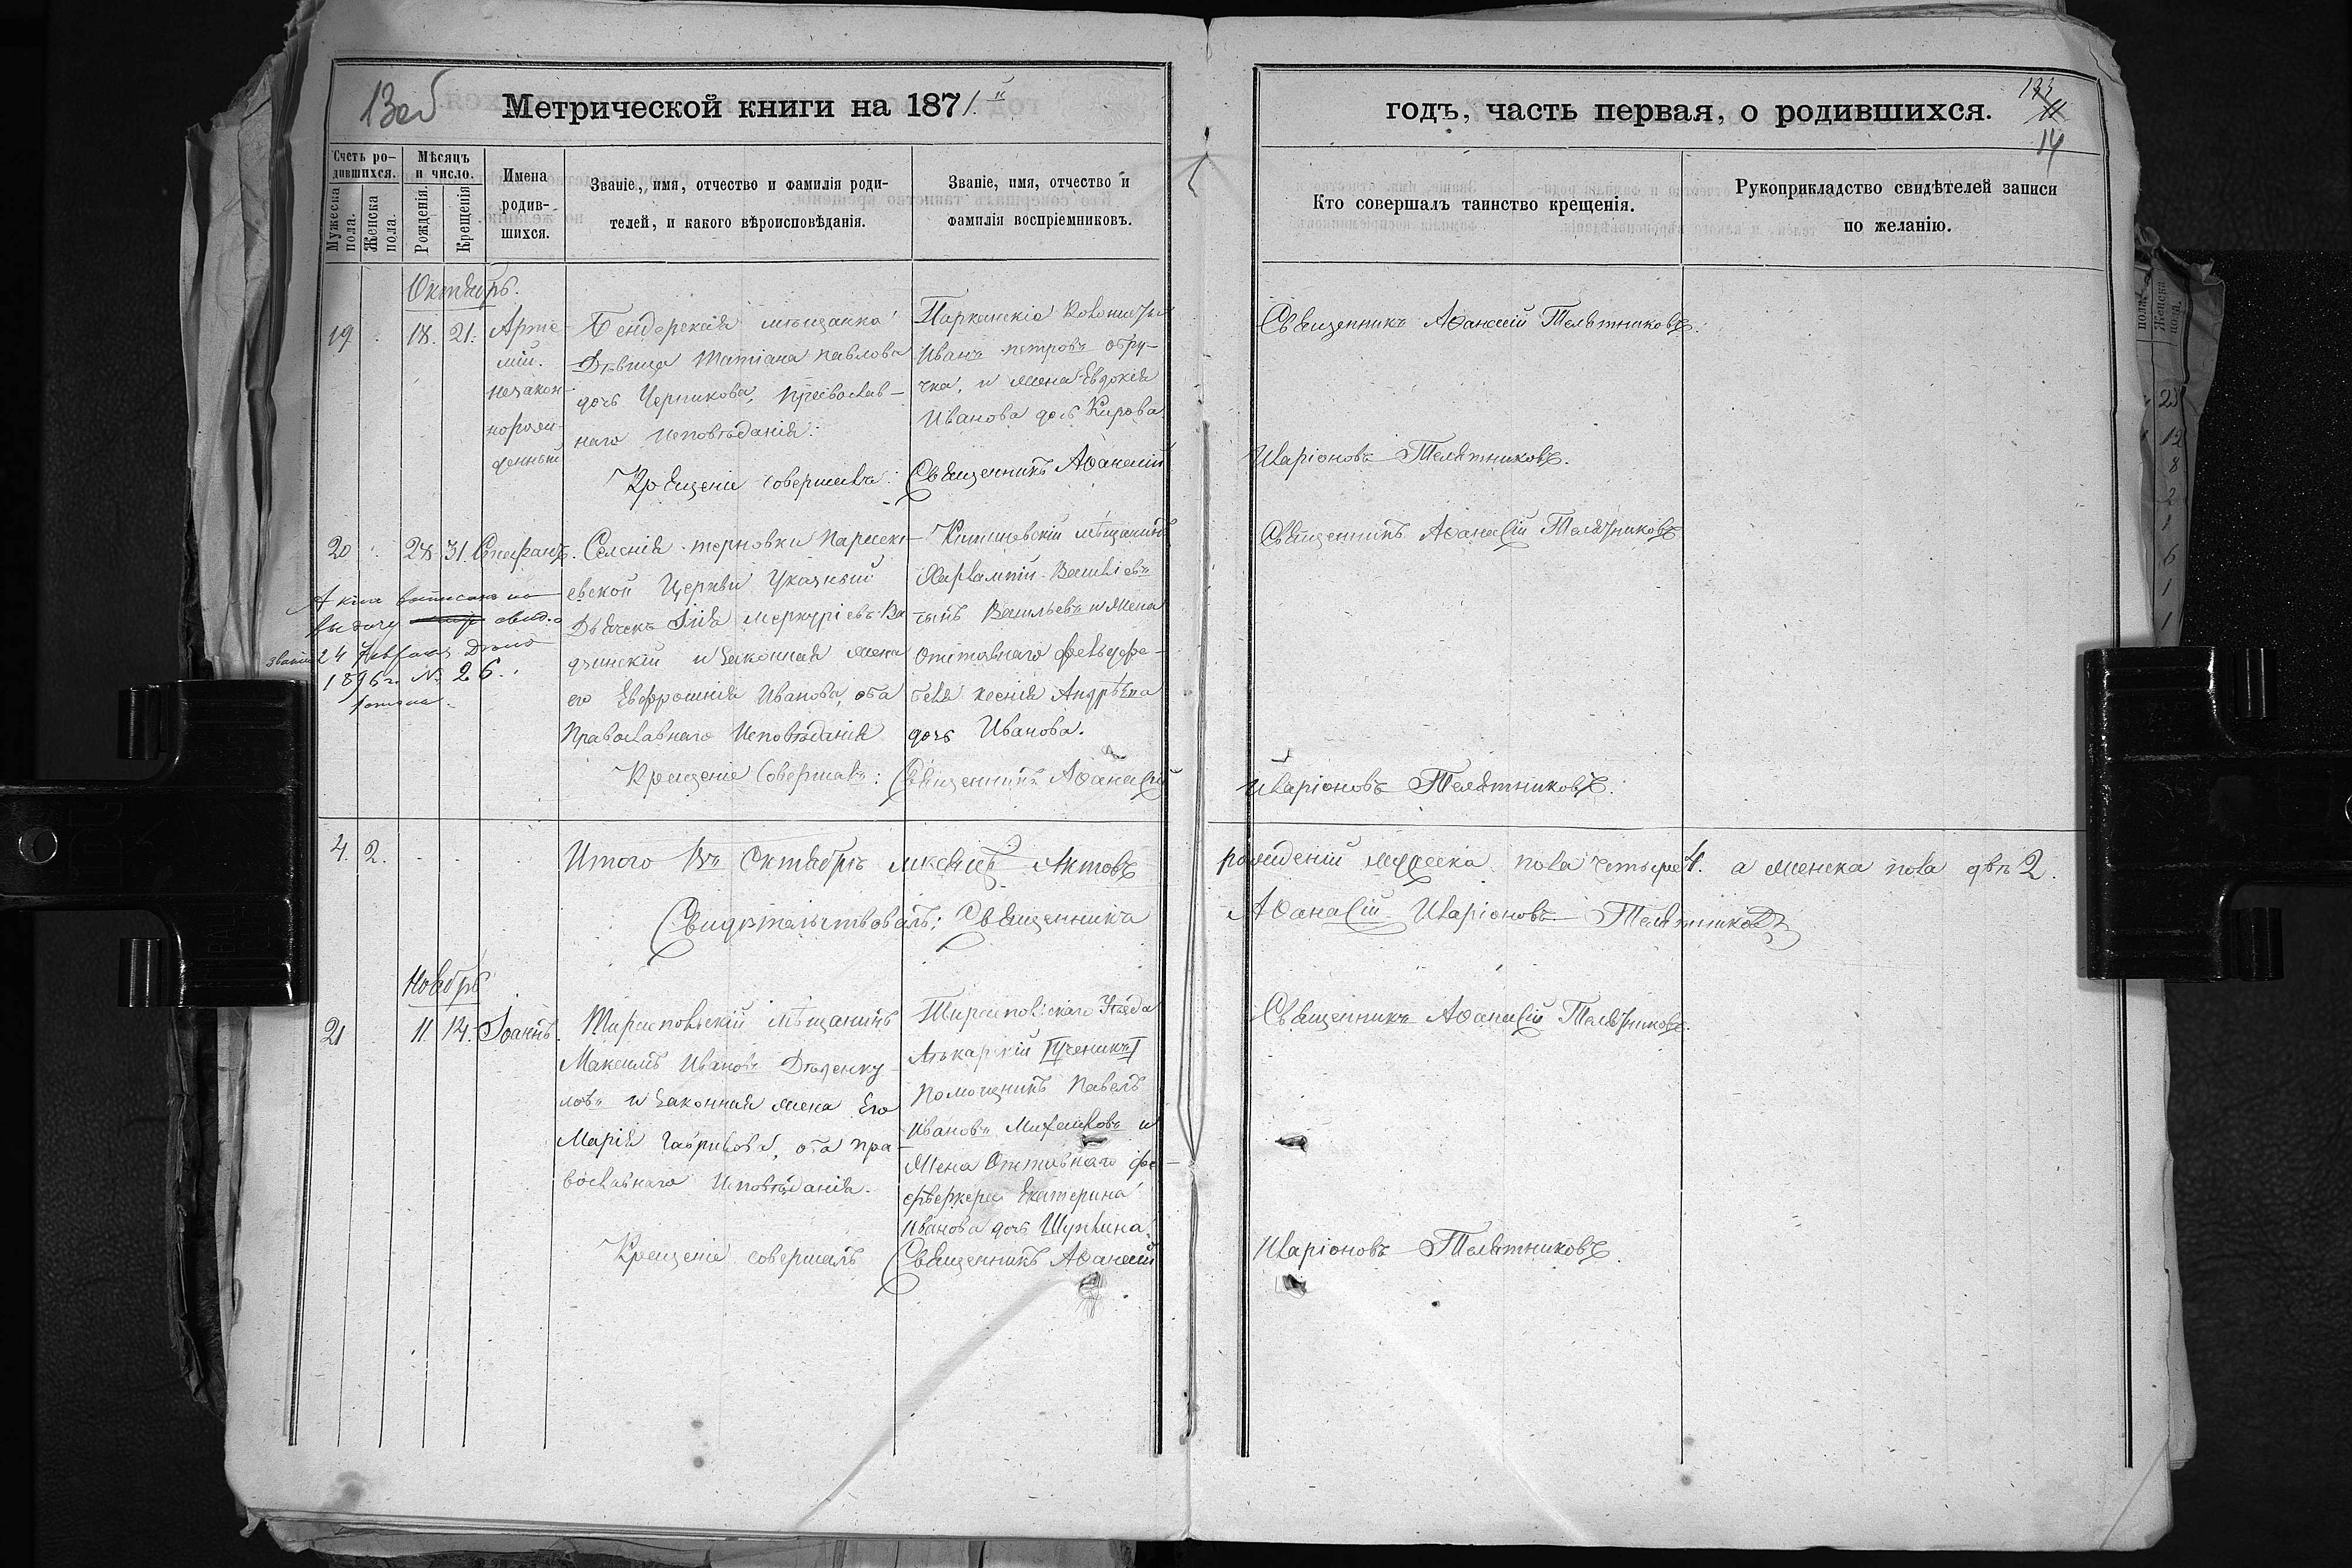 13об
Метрической книги на 1871.й
годъ, часть первая, о родившихся.
14
Счетъ родившихся.
Мужеска пола.
Женска пола.
Мѣсяцъ и число.
Рожденія.
Крещенія
Имена родившихся.
Званіе, имя, отчество и фамилія родителей, и какого вѣроисповѣданія.
Званіе, имя, отчество и фамилія воспріемниковъ.
Кто совершалъ таинство крещенія.
Рукоприкладство свидѣтелей записи по желанію.
Октябрь.
19 18. 21. Арте-
мій.
незакон-
норож-
денный
Бендерская мѣщанка
Дѣвица Татіана Павлова
дочь Черникова, Православ-
наго Исповѣданія.
Парканскіе
Иванъ Петровъ
и жена Евдокія
Иванова дочь Кирова
Священникъ Аѳанасій Телятниковъ.
Крещеніе совершалъ: Священникъ Аѳанасій
Иларіоновъ Телятниковъ.
20 28 31. Спиридонъ.
Селенія Терновки Параске-
евской Церкви Указный
Дьячекъ Илія Меркуріевъ
и Законная жена
его Евфросинія Иванова, оба
Православнаго Исповѣданія
Кишиневскій мѣщанинъ
Харлампій Васильевъ
сынъ Васильевъ и жена
Отставнаго фельдфе-
беля Ксенія Андрѣева
дочь Иванова.
24
1896 г. № 26.
Священникъ Аѳанасій Телятниковъ
Крещеніе Совершалъ: Священникъ Аѳанасій
Иларіоновъ Телятниковъ.
4. 2. Итого въ Октябрѣ мѣсяцѣ Актовъ рожденій мужеска пола четыре 4. а женска пола двѣ 2.
Свидѣтельствовалъ: Священникъ Аѳанасій Иларіоновъ Телятниковъ
Ноябрь
21 11. 14. Іоаннъ.
Тираспольскій мѣщанинъ
Максимъ Ивановъ
и Законная жена Его
Марія Гаврилова, оба пра-
вославнаго Исповѣданія.
Тираспольскаго Уѣзда
Лѣкарскій Ученикъ
Помощникъ Павелъ
Ивановъ Михайловъ и
Жена Отставнаго фе-
ерверкера Екатерина
Иванова дочь
Священникъ Аѳанасій Телятниковъ.
Крещеніе совершалъ Священникъ Аѳанасій
Иларіоновъ Телятниковъ.